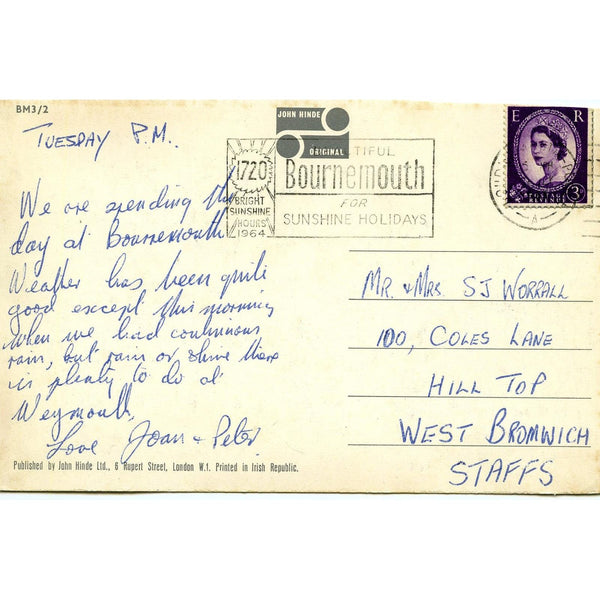 BM3/2
JOHN HINDE
ORIGINAL
TUESDAY P.M.
1720
BRIGHT
SUNSHINE
HOURS
1964
TIFUL
Bournemouth
FOR
SUNSHINE HOLIDAYS
E R
POSTAGE
REVENUE
3D
A
We are spending the
day at Bournemouth
Weather has been quite
good except this morning
when we had continuous
rain, but rain or shine there
is plenty to do at
Weymouth.
Love Joan + Peter
MR. & MRS SJ WORRALL
100, COLES LANE
HILL TOP
WEST BROMWICH
STAFFS
Published by John Hinde Ltd., 6 Rupert Street, London W.1. Printed in Irish Republic.